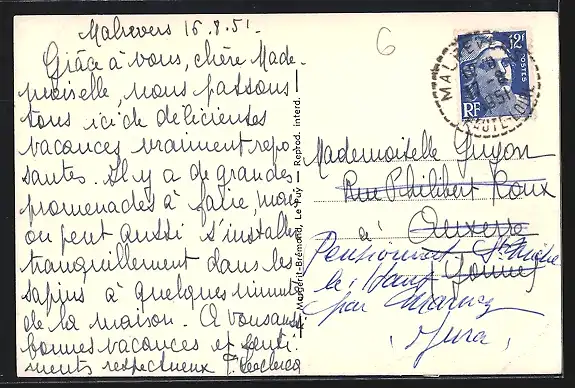 Malrevers 16.8.51.
Grâce à vous, chère Made-
moiselle, nous passons
tous ici de délicieuses
vacances vraiment repo-
santes. Il y a de grandes
promenades à faire, mais
on peut aussi s'installer
tranquillement dans les
sapins à quelques minutes
de la maison. A vous aussi
bonnes vacances et senti-
ments respectueux J. Leclercq
Margerit-Brémond, Le Puy — Reprod. interd.
6
12F
POSTES
RF
MALREVERS
HAUTE-LOIRE
Mademoiselle Guyon
Rue Philibert Roux
à Auxerre
Yonne
Pensionnat
le Haut
par
Jura